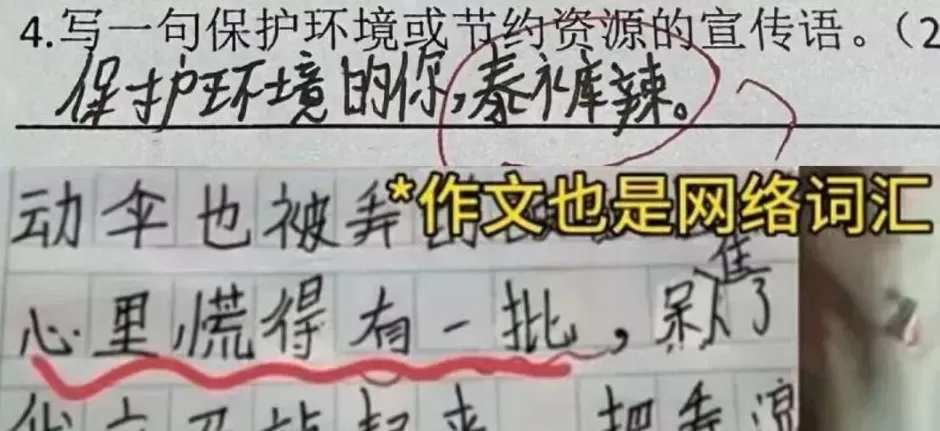 4.写一句保护环境或节约资源的宣传语。（2
保护环境的你,泰裤辣。
*作文也是网络词汇
动伞也被弄
心里慌得有一批，呆住了